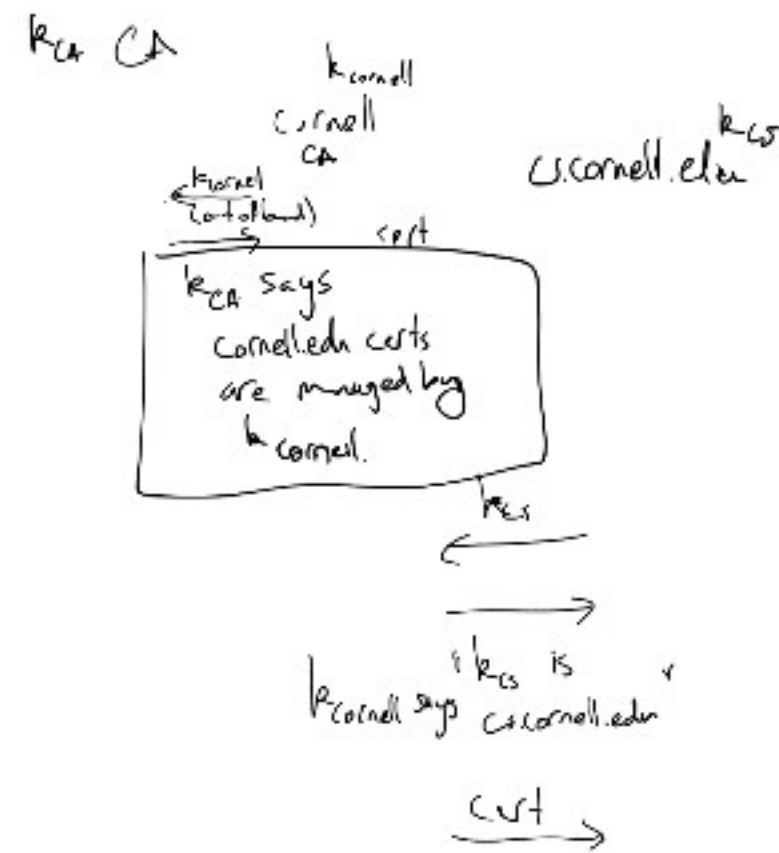 k_CA CA
k_cornell
cornell
CA
k_cs
cs.cornell.edu
k_cornell
(out of band)
cert
k_CA says
cornell.edu certs
are managed by
k_cornell.
k_cs
"k_cs is
k_cornell says cs.cornell.edu"
cert